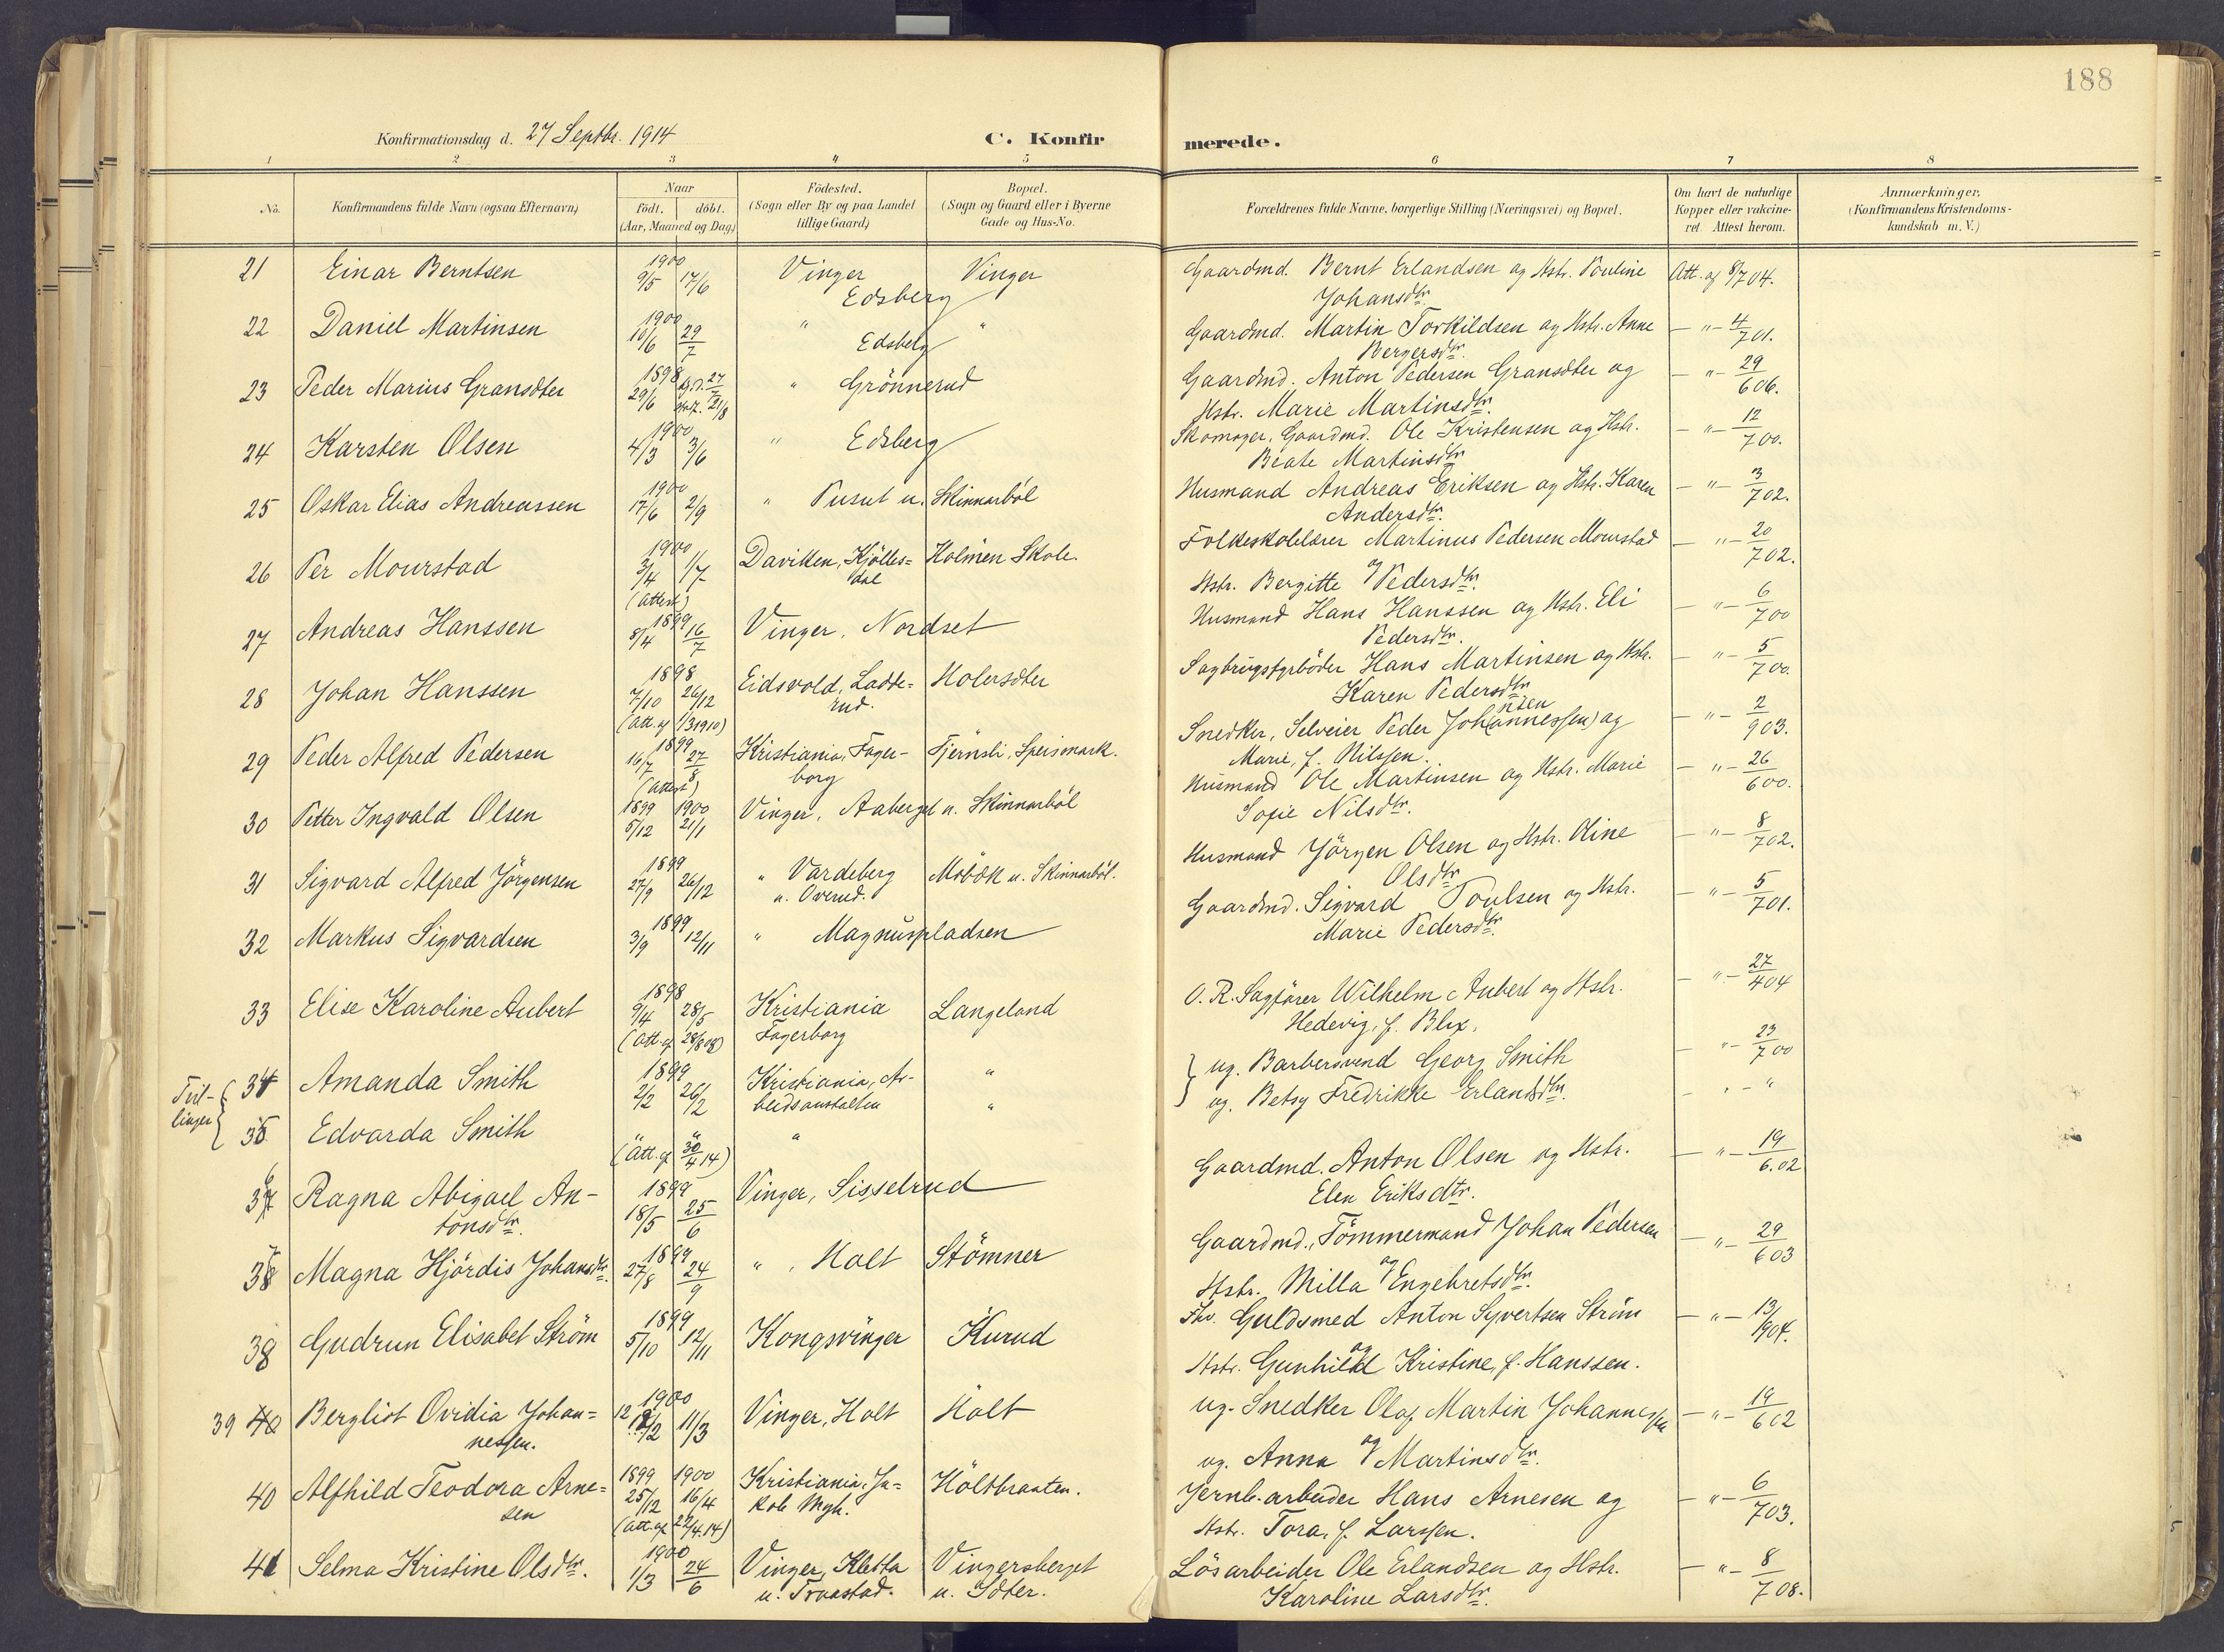 188
Konfirmationsdag d. 27 Septbr. 1914
C. Konfirmerede.
1 2 3 4 5 6 7 8
No.
Konfirmandens fulde Navn (ogsaa Efternavn)
Naar
født. døbt.
(Aar, Maaned og Dag)
Födested.
(Sogn eller By og paa Landet
tillige Gaard)
Bopæl.
(Sogn og Gaard eller i Byerne
Gade og Hus-No.
Forældrenes fulde Navne, borgerlige Stilling (Næringsvei) og Bopæl.
Om havt de naturlige
Kopper eller vakcine-
ret. Attest herom.
Anmærkninger,
(Konfirmandens Kristendoms-
kundskab m. V.)
21 Einar Berntsen 1900 9/5 17/6 Vinger Edsberg Vinger Gaardmd. Bernt Erlandsen og Hstr. Pouline Att. af 8/7 04.
Johansdtr.
22 Daniel Martinsen 1900 10/6 29/7 " Edsberg " Gaardmd. Martin Torkildsen og Hstr. Anne — " — 4/7 01.
Bergersdtr.
23 Peder Marius Gransdter 1898 29/6 21/8 " Grönnerud Gaardmd. Anton Pedersen Gransdter og — " — 29/6 06.
Hstr. Marie Martinsdtr.
24 Karsten Olsen 1900 4/3 3/6 " Edsberg Skomager, Gaardmd. Ole Kristensen og Hstr. — " — 12/7 00.
Beate Martinsdtr
25 Oskar Elias Andreassen 1900 17/6 2/9 " Pusut u. Skinnarböl Husmand Andreas Eriksen og Hstr. Karen — " — 3/7 02.
Andersdtr.
26 Per Mourstad 1900 3/4 1/7 (Attest) Daviken, Kjölles=dal Holmen Skole. Folkeskolelærer Martinus Pedersen Mourstad — " — 20/7 02.
og
Hstr. Bergitte Pedersdtr.
27 Andreas Hanssen 1899 8/4 16/7 Vinger, Nordset Husmand Hans Hanssen og Hstr. Eli — " — 6/7 00
Pedersdtr.
28 Johan Hanssen 1898 7/10 26/12 (Att. af 1/3 1910) Eidsvold, Ladde=rud. Holersdter Sagbrugsfyrböder Hans Martinsen og Hstr. — " — 5/7 00.
Karen Pedersdtr
29 Peder Alfred Pedersen 1899 16/7 27/8 (Attest) Kristiania, Fager-borg Tjernsli, Speismark. Snedker, Selveier Peder Joh(annessen) nsen og — " — 2/9 03.
Marie, f. Nilssen.
30 Petter Ingvald Olsen 1899 5/12 1900 21/1 Vinger, Aaberget u. Skinnarböl Husmand Ole Martinsen og Hstr. Marie — " — 26/6 00.
Sofie Nilsdtr.
31 Sigvard Alfred Jörgensen 1899 27/9 26/12 " Vardeberg u. Overud. Möbæk u. Skinnarböl. Husmand Jörgen Olsen og Hstr. Oline — " — 8/7 02.
Olsdtr
32 Markus Sigvardsen 1899 3/9 12/11 " Magnuspladsen Gaardmd. Sigvard Poulsen og Hstr. — " — 5/7 01.
Marie Pedersdtr.
33 Elise Karoline Aubert 1898 9/4 28/5 (Att. af 28/8 08) Kristiania Fagerborg Langeland O. R. Sagförer Wilhelm Aubert og Hstr. — " — 27/4 04
Hedevig, f. Blix.
Tvil-
linger
34 Amanda Smith 1899 2/2 26/2 Kristiania, Ar-beidsanstalten " ug. Barbersvend Georg Smith — " — 23/7 00
35 Edvarda Smith " " (Att. af 30/4 14) " " ug. Betsy Fredrikke Erlandsdtr. — " — "
36 Ragna Abigael An-tonsdtr. 1899 18/5 25/6 Vinger, Sisselrud Gaardmd. Anton Olsen og Hstr. — " — 19/6.02
Elen Eriksdtr.
37 Magna Hjördis Johansdtr. 1899 27/8 24/9 " , Holt Stömner Gaardmd., Tömmermand Johan Pedersen — " — 29/6 03
og
Hstr. Milla Engebretsdtr.
38 Gudrun Elisabet Ström 1899 5/10 12/11 Kongsvinger Kurud Fhv. Guldsmed Anton Syvertsen Ström — " — 13/9 04.
og
Hstr. Gunhild Kristine, f. Hanssen.
39 40 Bergliot Ovidia Johan=nessen. 1900 12/2 11/3 Vinger, Holt Holt ug. Snedker Olaf Martin Johannessen — " — 19/6 02
og
ug. Anna Martinsdtr.
40 Alfhild Teodora Arne=sen 1899 25/12 1900 16/4 (Att. af 22/4.14) Kristiania, Ja-kob Mgh. Holtbraaten. Jernb.arbeider Hans Arnesen og — " — 6/7 03.
Hstr. Tora, f. Larssen.
41 Selma Kristine Olsdtr. 1900 1/3 24/6 Vinger, Kletta u. Traastad. Vingersberget u. Sdter. Lösarbeider Ole Erlandsen og Hstr. — " — 8/7 08.
Karoline Larsdtr.